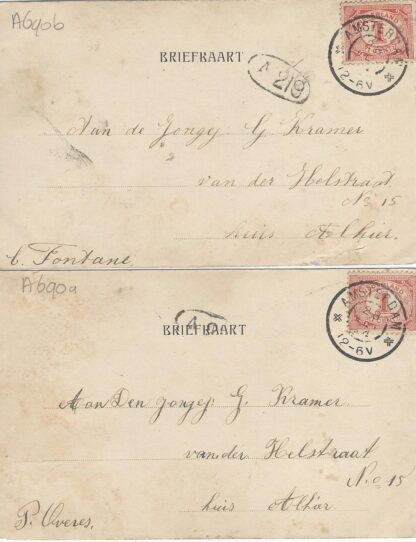 A690b
BRIEFKAART
A 219
AMSTERDAM
12-6V
1
Aan de Jongej G. Kramer
van der Helstraat
No 15
huis Alhier.
b. Fontane,
A690a
BRIEFKAART
AMSTERDAM
12-6V
1
Aan Den jongej: G. Kramer
van der Helstraat
No 15
huis Alhier
P. Overes.